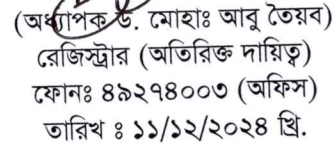 (অধ্যাপক ড. মোহাঃ আবু তৈয়ব)
রেজিস্ট্রার (অতিরিক্ত দায়িত্ব)
ফোনঃ ৪৯২৭৪০০৩ (অফিস)
তারিখ ঃ ১১/১২/২০২৪ খ্রি.